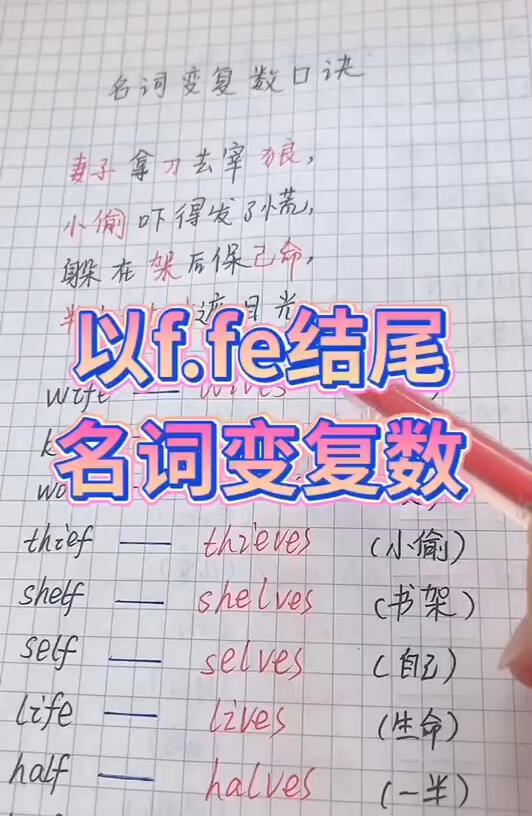 名词变复数口诀
妻子拿刀去宰狼,
小偷吓得发了慌,
躲在架后保己命,
半 遮目光
以f.fe结尾
wife — wives
名词变复数
thief — thieves (小偷)
shelf — shelves (书架)
self — selves (自己)
life — lives (生命)
half — halves (一半)